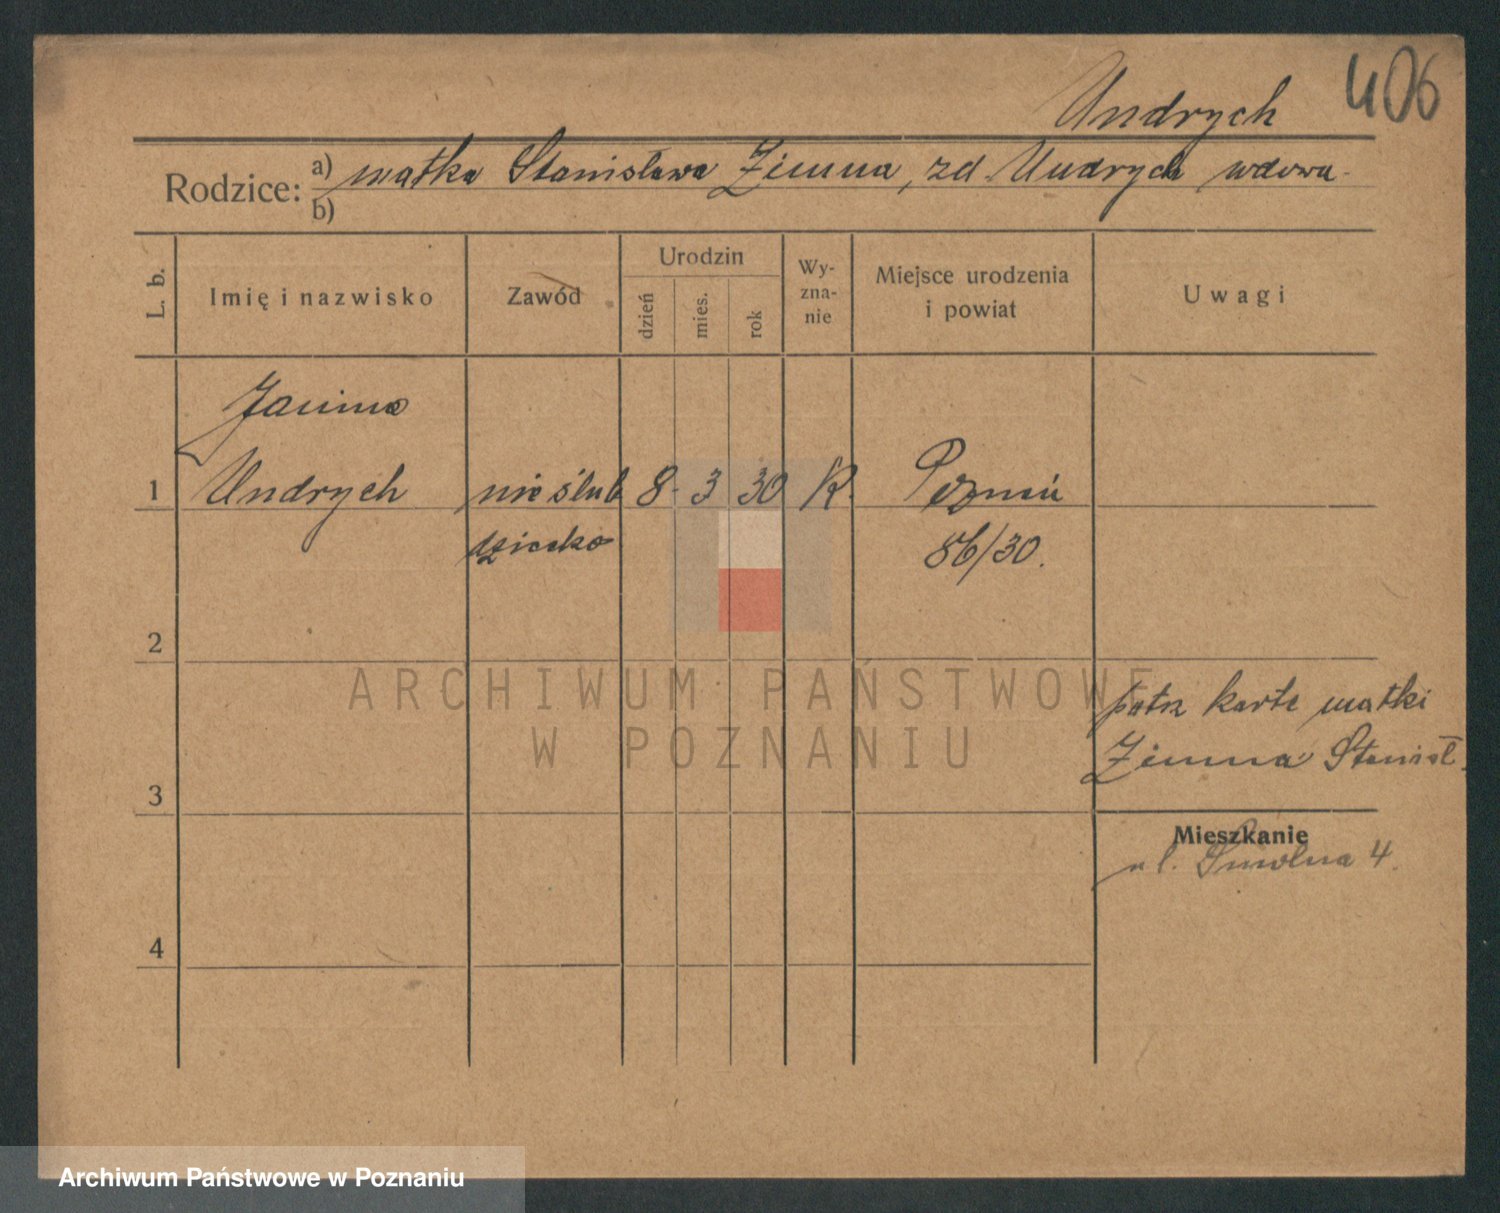 406
Undrych
Rodzice: a) matka Stanisława Zimna, zd. Undrych wdowa
b)
L. b. Imię i nazwisko Zawód Urodzin dzień mies. rok Wy-zna-nie Miejsce urodzenia i powiat Uwagi
Janina
1 Undrych nieślub 8. 3 30 R. Poznań
dziecko 86/30.
2
ARCHIWUM PAŃSTWOWE
W POZNANIU
patrz kartę matki
Zimna Stanisł.
3
Mieszkanie
ul. Smolna 4.
4
Archiwum Państwowe w Poznaniu